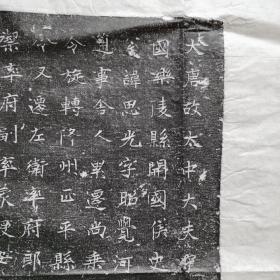 大唐故太中大夫
國樂陵縣開國侯史
諱思光字昭覺河
通事舍人累遷尚乘
令旋轉降州正平縣
令又遷左衛率府郎
禦率府副率